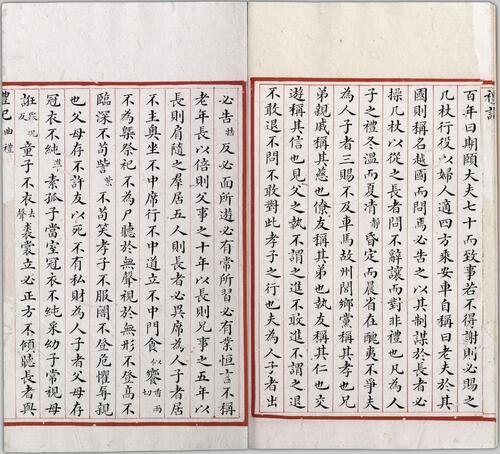 百年曰期頤大夫七十而致事若不得謝則必賜之
几杖行役以婦人適四方乘安車自稱曰老夫於其
國則稱名越國而問焉必告之以其制謀於長者必
操几杖以從之長者問不辭讓而對非禮也凡為人
子之禮冬溫而夏凊靜昏定而晨省在醜夷不爭夫
為人子者三賜不及車馬故州閭鄉黨稱其孝也兄
弟親戚稱其慈也僚友稱其弟也執友稱其仁也交
遊稱其信也見父之執不謂之進不敢進不謂之退
不敢退不問不敢對此孝子之行也夫為人子者出
必告反必面所遊必有常所習必有業恒言不稱
老年長以倍則父事之十年以長則兄事之五年以
長則肩隨之羣居五人則長者必異席為人子者居
不主奧坐不中席行不中道立不中門食饗香兩切
不為槩祭祀不為尸聽於無聲視於無形不登高不
臨深不苟訾紫不苟笑孝子不服闇不登危懼辱親
也父母存不許友以死不有私財為人子者父母存
冠衣不純準素孤子當室冠衣不純采幼子常視母
誑況反童子不衣去聲裘裳立必正方不傾聽長者與
禮記曲禮